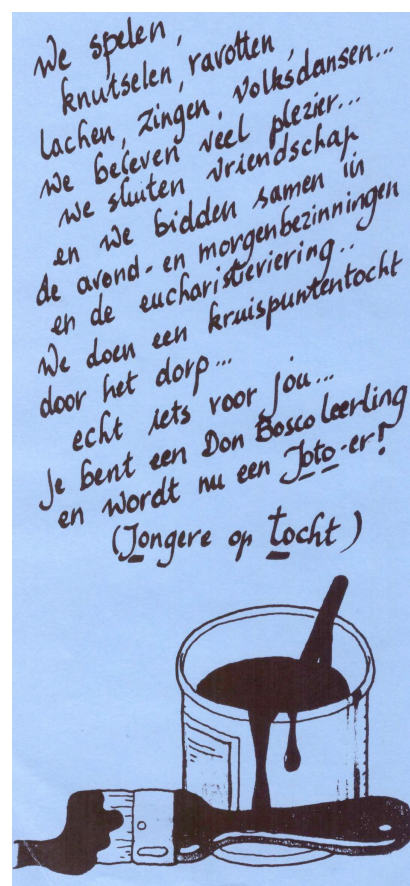 We spelen,
knutselen, ravotten,
lachen, zingen, volksdansen...
we beleven veel plezier...
we sluiten vriendschap
en we bidden samen in
de avond- en morgenbezinningen
en de eucharistieviering...
We doen een kruispuntentocht
door het dorp...
echt iets voor jou...
Je bent een Don Bosco leerling
en wordt nu een Joto-er!
(Jongere op tocht)